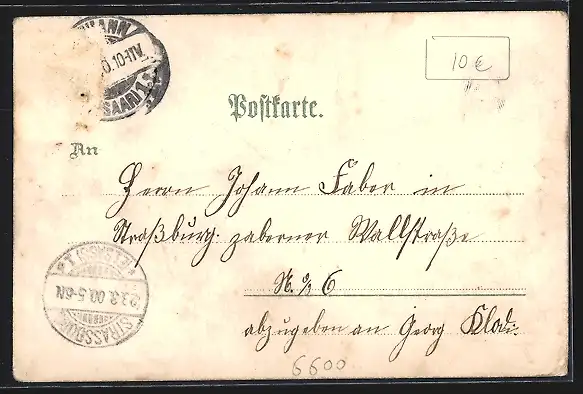 MANN
0.10-11V.
(SAAR) 1
10 €
Postkarte.
An
Herrn Johann Faber in
Straßburg zaberner Wallstraße
No. 6
abzugeben an Georg
* 1 (ELSASS) *
23.3.00.5-6N
STRASSBURG
6600